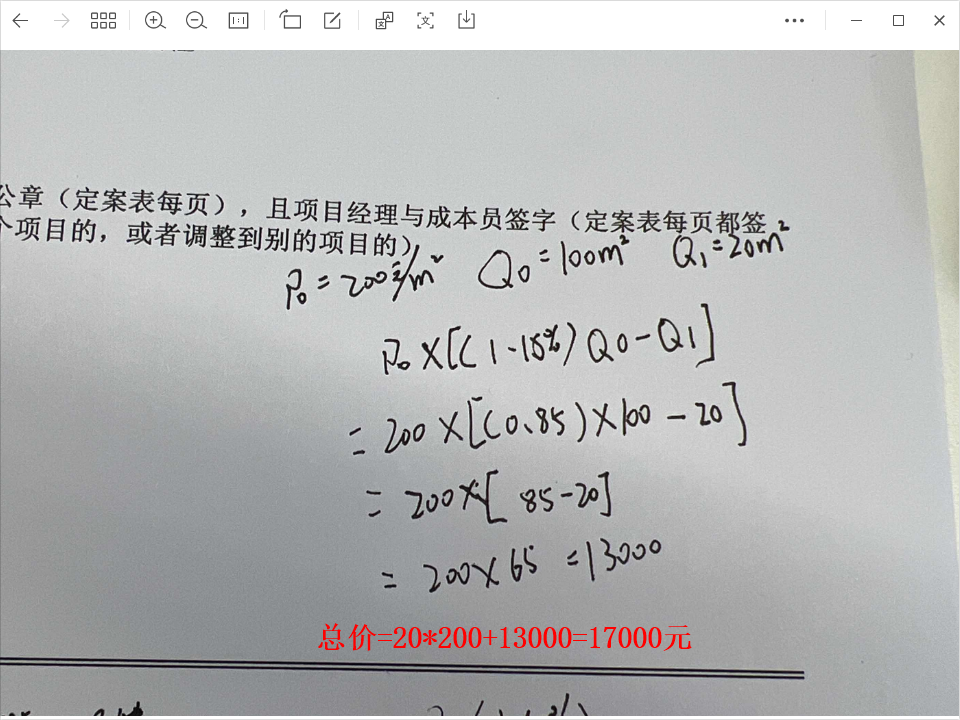 公章（定案表每页），且项目经理与成本员签字（定案表每页都签
个项目的，或者调整到别的项目的）
P₀=200元/m² Q₀=100m² Q₁=20m²
P₀×[(1-15%)Q₀-Q₁]
=200×[(0.85)×100-20]
=200×[85-20]
=200×65=13000
总价=20*200+13000=17000元